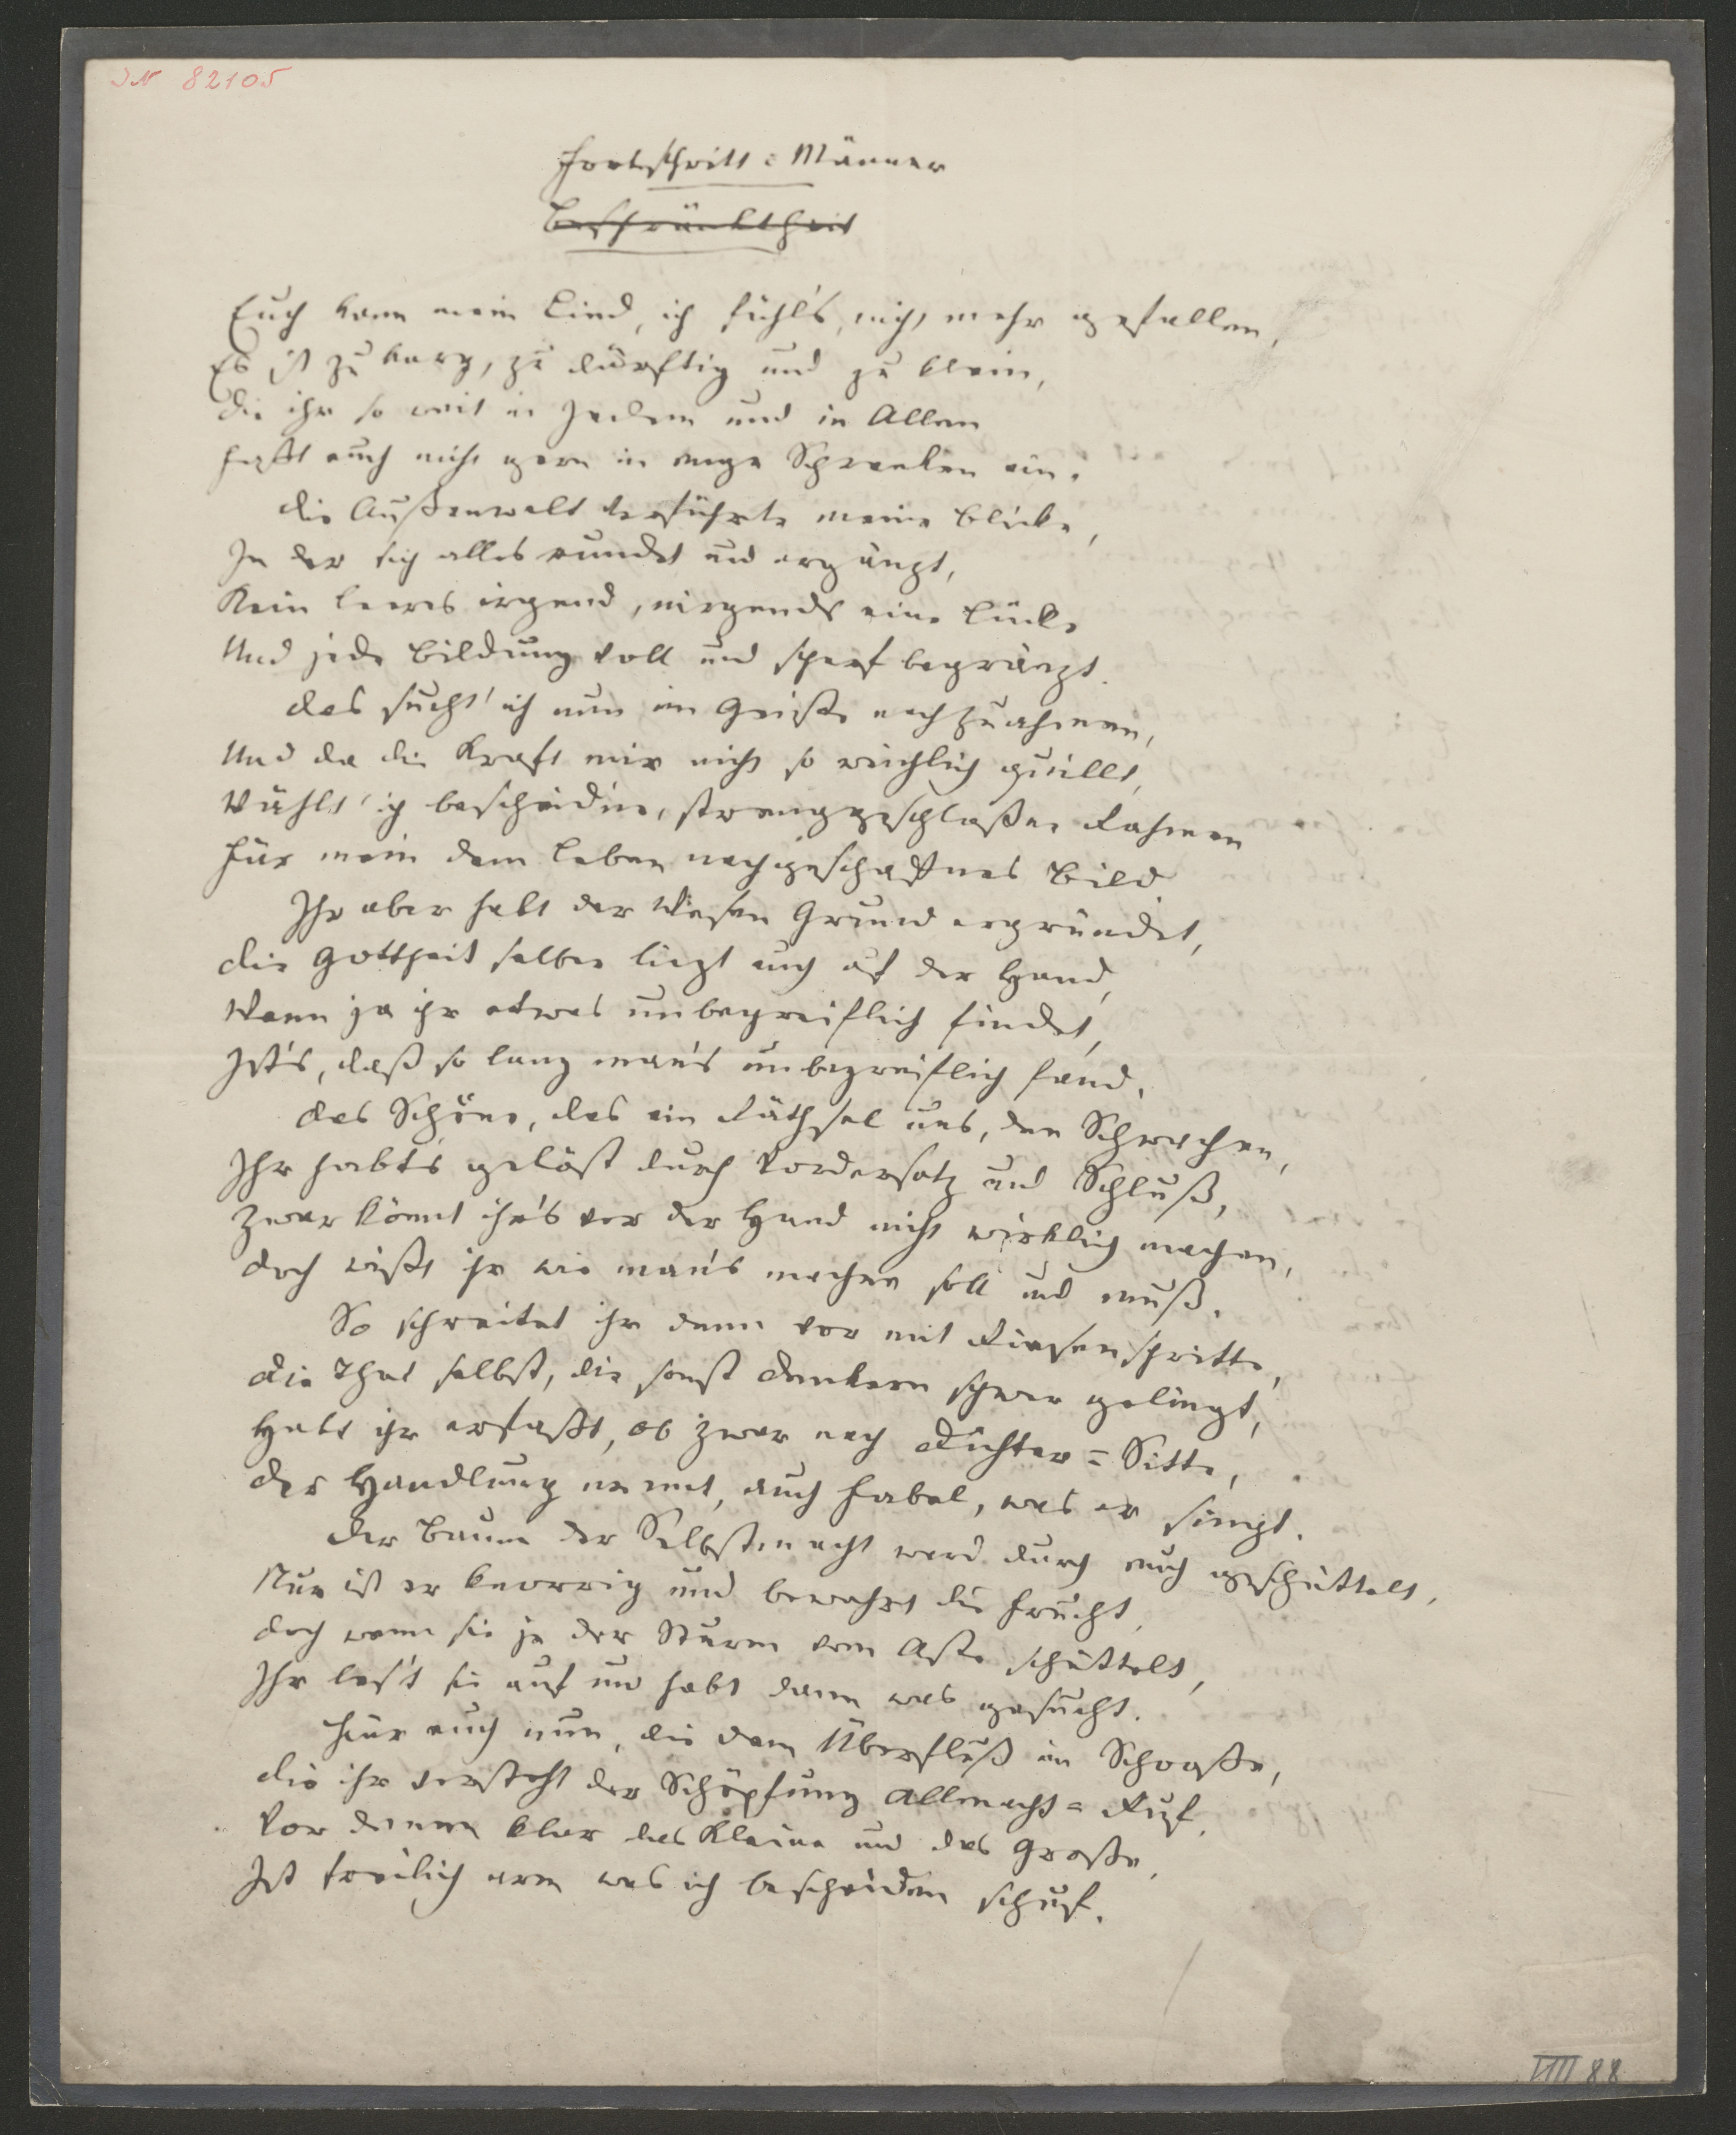 IN 82105
Fortschritt=Männer
Beschränktheit
Euch kann mein Lied, ich fühl's, nicht mehr gefallen,
Es ist zu karg, zu dürftig und zu klein,
Die ihr so weit in Jedem und in Allem
Faßt euch nicht gern in enge Schranken ein.
Die Außenwelt verführte meine Blicke,
In der sich alles rundet und ergänzt,
Kein leeres irgend, nirgends eine Lücke
Und jede Bildung voll und scharf begränzt.
Das sucht' ich nun im Geiste nachzuahmen,
Und da die Kraft mir nicht so reichlich quillt,
Wählt' ich bescheidne, strenggeschloßne Rahmen
Für mein dem Leben nachgeschaffnes Bild
Ihr aber habt der Wesen Grund ergründet,
Die Gottheit selber liegt euch auf der Hand,
Wenn ja ihr etwas unbegreiflich findet,
Ist's, daß so lang man's unbegreiflich fand.
Das Schöne, das ein Räthsel uns, den Schwachen,
Ihr habt's gelöst durch Vordersatz und Schluß,
Zwar könnt ihr's vor der Hand nicht wirklich machen,
Doch wißt ihr wie man's machen soll und muß.
So schreitet ihr denn vor mit Riesenschritte,
Die That selbst, die sonst Denkern schwer gelingt,
Habt ihr erfaßt, ob zwar nach Dichter=Sitte,
Der Handlung nennt, auch Fabel, was er singt.
Der Baum der Selbstmacht ward durch euch geschüttelt,
Nur ist er knorrig und bewahrt die Frucht,
Doch wenn sie ja der Sturm vom Aste schüttelt,
Ihr les't sie auf und habt dann was gesucht.
Für euch nun, die dem Überfluß im Schooße,
Die ihr versteht der Schöpfung Allmacht=Ruf,
Vor denen klar das Kleine und das Große,
Ist freilich arm was ich bescheiden schuf.
VIII 88